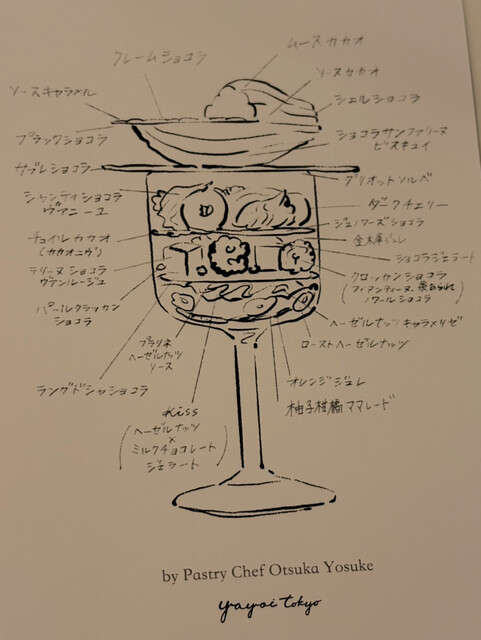 ムースカカオ
クレームショコラ
ソースカカオ
ソースキャラメル
シェルショコラ
プラックショコラ
ショコラサンファリーヌ
ビスキュイ
サブレショコラ
グリオットソルベ
シャンティショコラ
ヴァニーユ
ダークチェリー
ジェノワーズショコラ
チュイルカカオ
(カカオニブ)
金木犀ジュレ
ショコラジェラート
テリーヌショコラ
ヴァンルージュ
クロッカンショコラ
ノワールショコラ
パールクラッカン
ショコラ
ヘーゼルナッツキャラメリゼ
プラリネ
ヘーゼルナッツ
ソース
ローストヘーゼルナッツ
ラングドシャショコラ
オレンジジュレ
柚子柑橘ママレード
Kiss
ヘーゼルナッツ
×
ミルクチョコレート
ジェラート
by Pastry Chef Otsuka Yosuke
yayoi tokyo